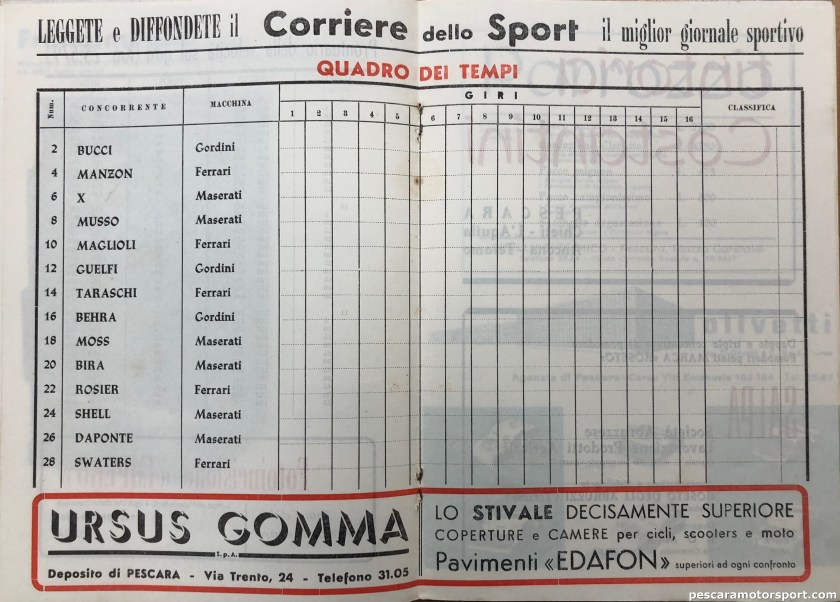 LEGGETE e DIFFONDETE il Corriere dello Sport il miglior giornale sportivo
QUADRO DEI TEMPI
Num. CONCORRENTE MACCHINA GIRI CLASSIFICA
1 2 3 4 5 6 7 8 9 10 11 12 13 14 15 16
2 BUCCI Gordini
4 MANZON Ferrari
6 X Maserati
8 MUSSO Maserati
10 MAGLIOLI Ferrari
12 GUELFI Gordini
14 TARASCHI Ferrari
16 BEHRA Gordini
18 MOSS Maserati
20 BIRA Maserati
22 ROSIER Ferrari
24 SHELL Maserati
26 DAPONTE Maserati
28 SWATERS Ferrari
URSUS GOMMA
S.p.A.
Deposito di PESCARA - Via Trento, 24 - Telefono 31.05
LO STIVALE DECISAMENTE SUPERIORE
COPERTURE e CAMERE per cicli, scooters e moto
Pavimenti «EDAFON» superiori ad ogni confronto
pescaramotorsport.com